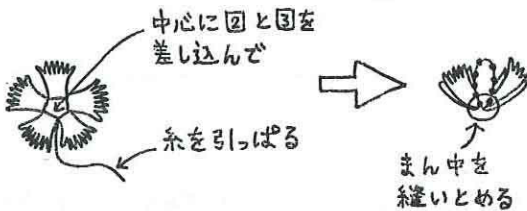 中心に2と3を
差し込んで
糸を引っぱる
まん中を
縫いとめる